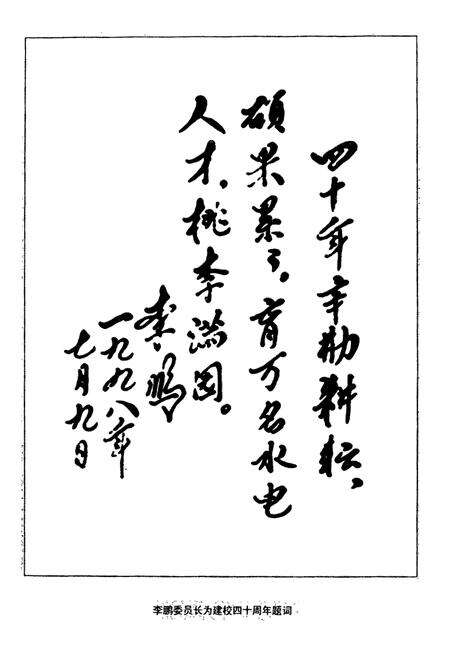 四十年辛勤耕耘，
硕果累々。育万名水电
人才，桃李满园。
李鹏
一九九八年
七月九日
李鹏委员长为建校四十周年题词